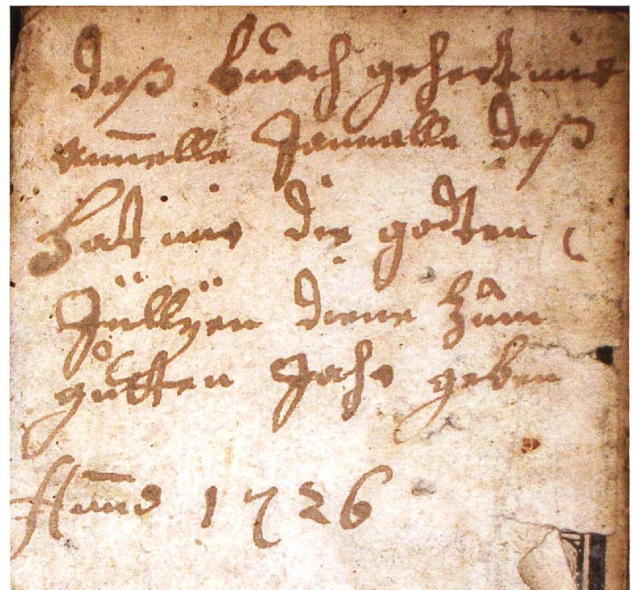 daß buoch gehert mir
annelle Jannalle daß
hat mir die godten
Jüllyen diene zum
gutten Jahr geben
Anno 1726